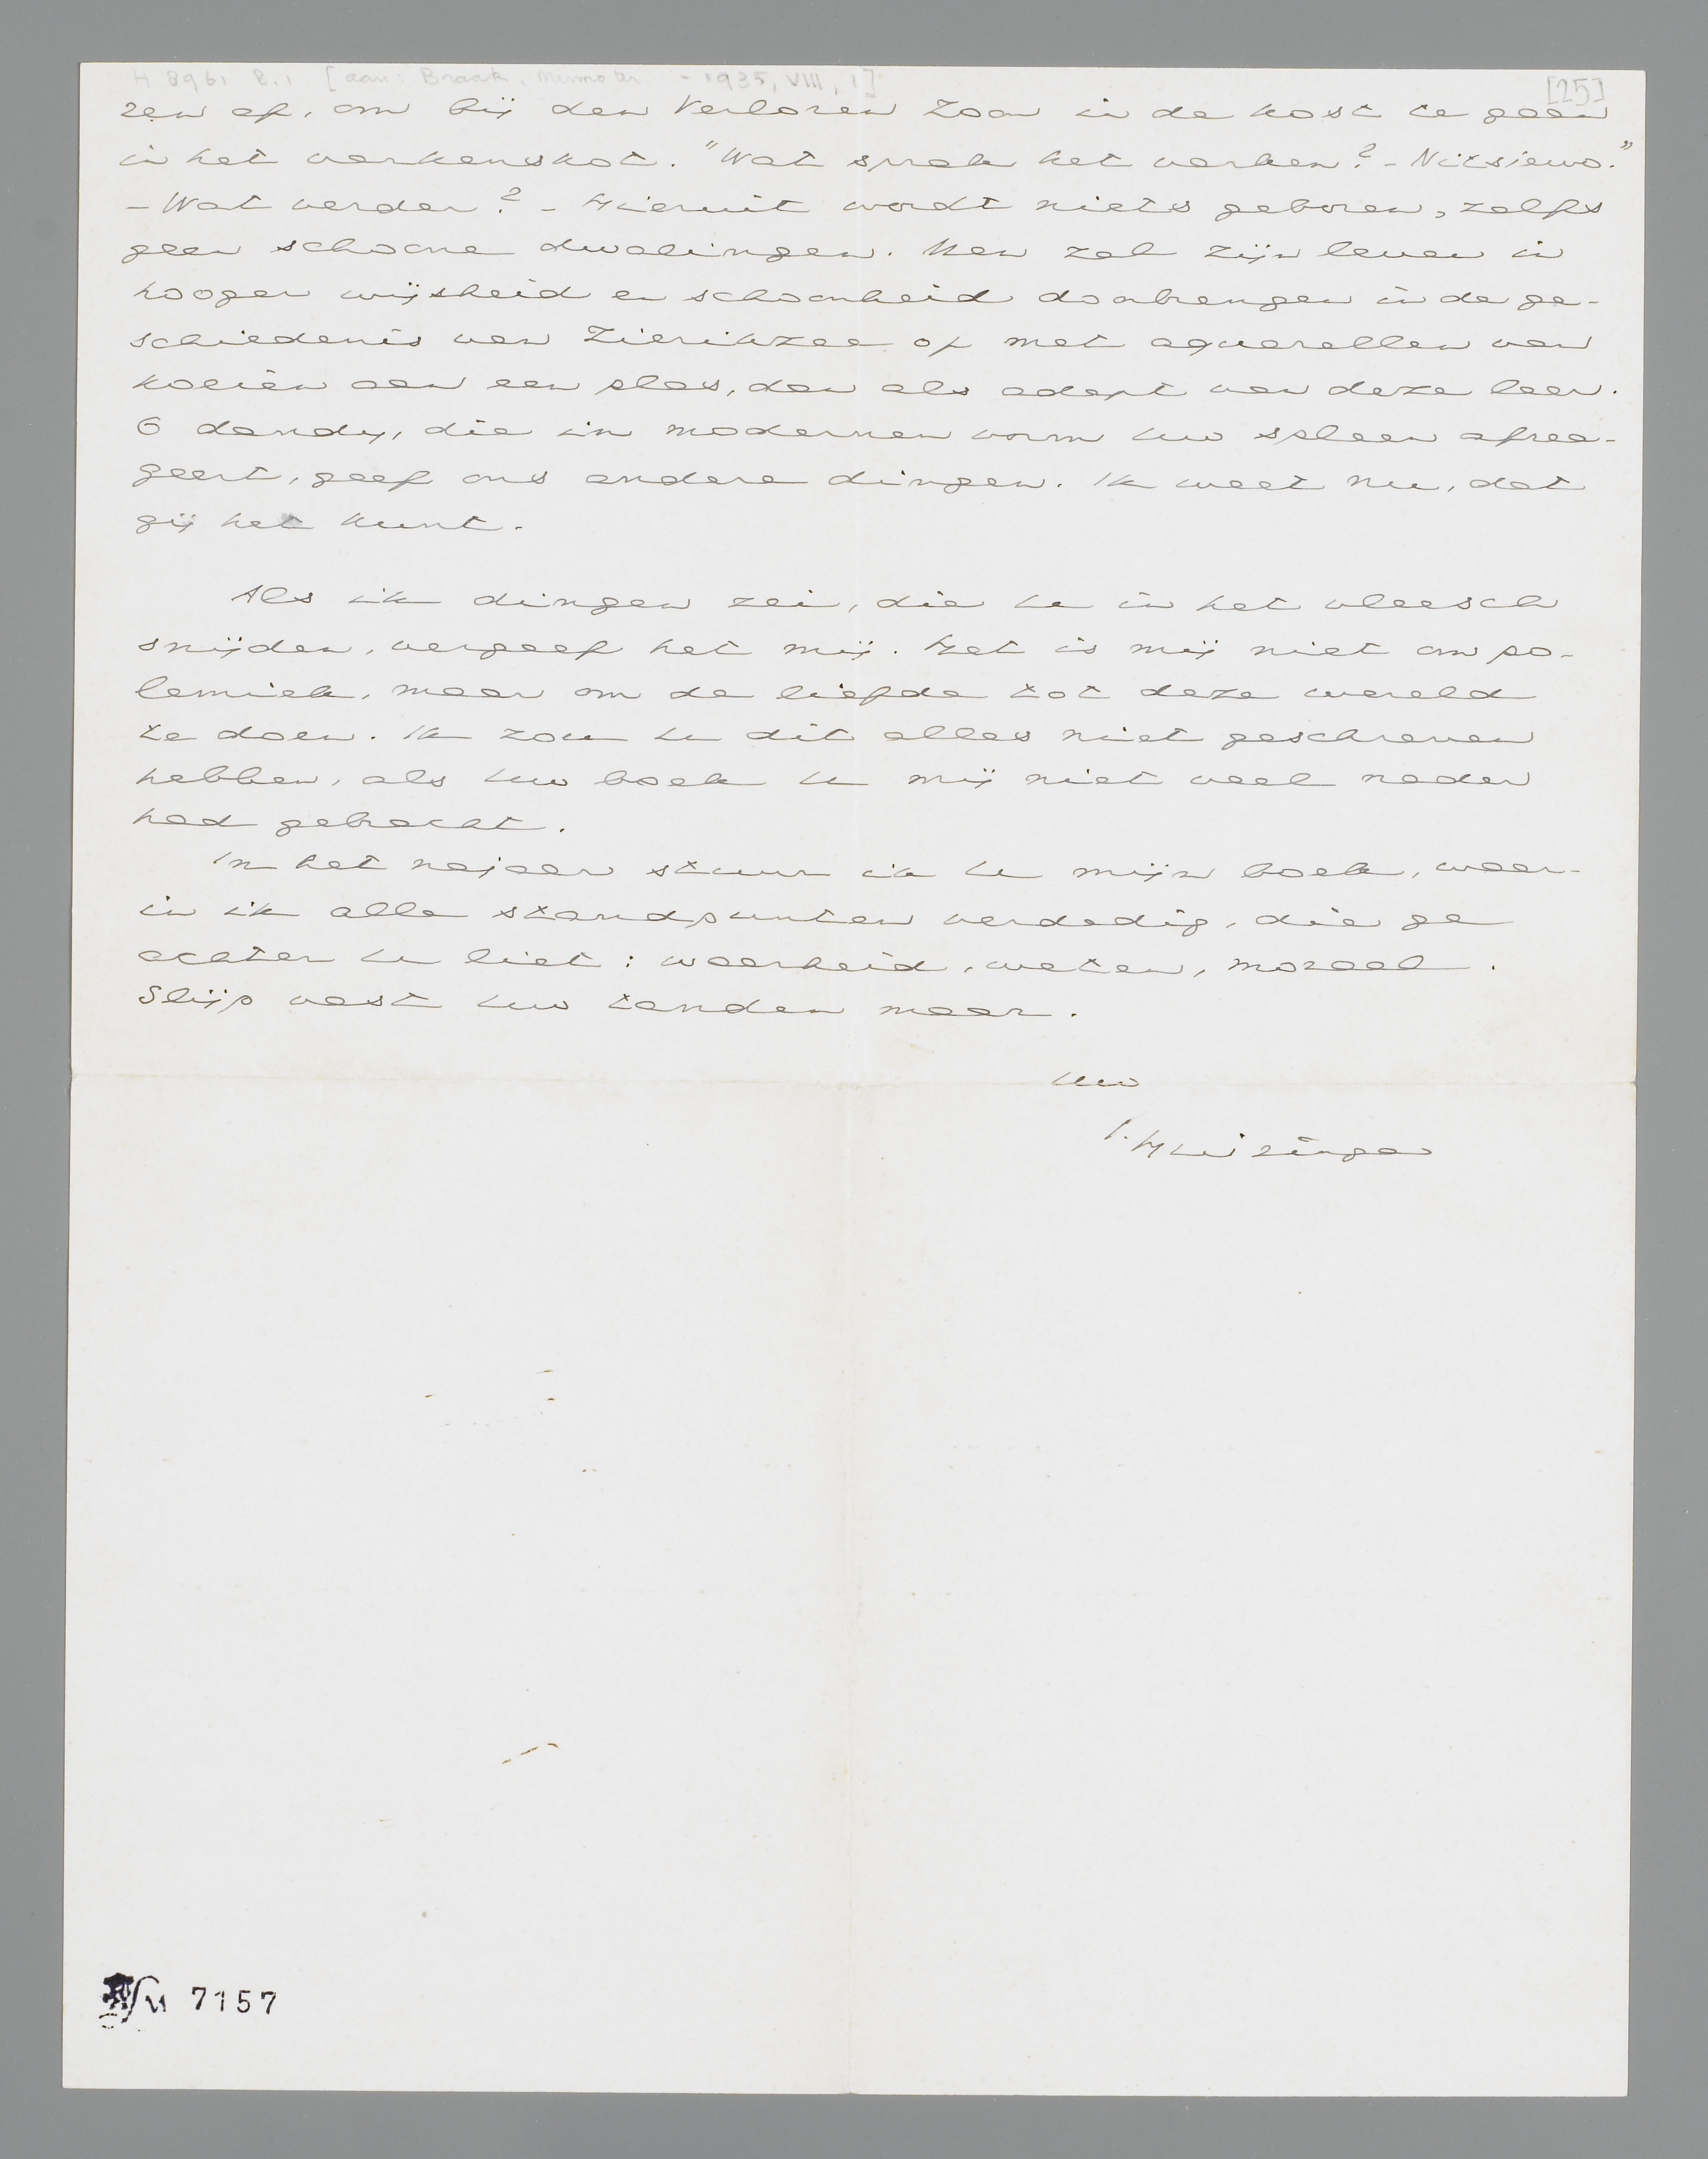 H 8961 B.1 [aan: Braak, Menno ter - 1935, VIII, 1] [25]
zen af, om bij den Verloren Zoon in de kost te gaan
in het varkenskot. "Wat sprak het varken? - Nitsjewo."
- Wat verder? - Hieruit wordt niets geboren, zelfs
geen schoone dwalingen. Men zal zijn leven in
hooger wijsheid en schoonheid doorbrengen in de ge-
schiedenis van Zierikzee of met aquarellen van
koeien aan een plas, dan als adept van deze leer.
O dandy, die in modernen vorm uw spleen afrea-
geert, geef ons andere dingen. Ik weet nu, dat
gij het kunt.
Als ik dingen zei, die U in het vleesch
snijden, vergeef het mij. Het is mij niet om po-
lemiek, maar om de liefde tot deze wereld
te doen. Ik zou U dit alles niet geschreven
hebben, als Uw boek U mij niet veel nader
had gebracht.
In het najaar stuur ik U mijn boek, waar-
in ik alle standpunten verdedig, die ge
achter U liet: waarheid, weten, moraal.
Slijp vast Uw tanden maar.
Uw
J. Huizinga
7157